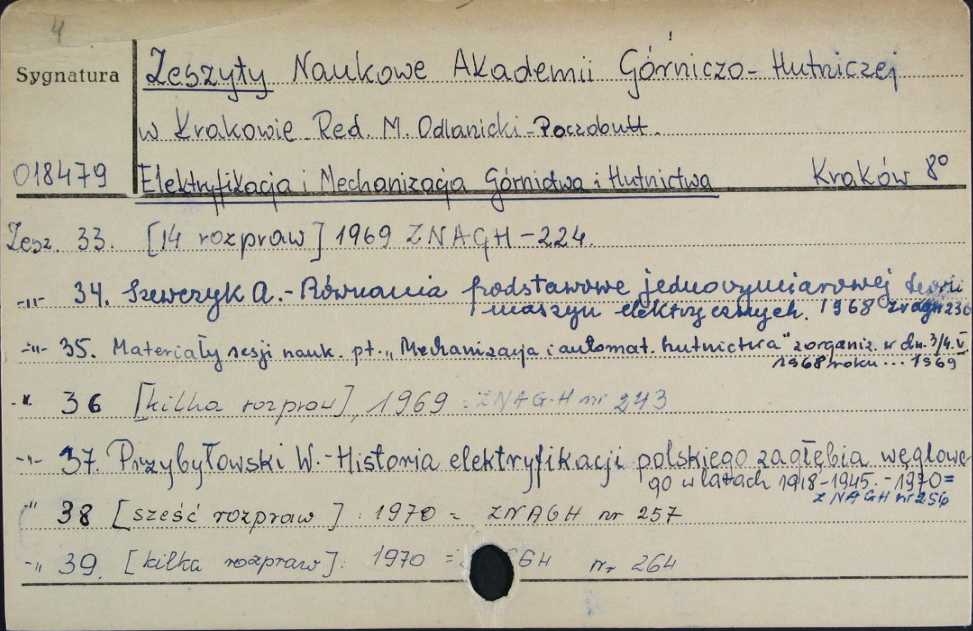 4
Sygnatura
Zeszyty Naukowe Akademii Górniczo-Hutniczej
w Krakowie. Red. M. Odlanicki-Poczobutt.
018479
Elektryfikacja i Mechanizacja Górnictwa i Hutnictwa Kraków 8°
Zesz. 33. [14 rozpraw] 1969 ZNAGH-224.
-"- 34. Szewczyk A.- Równania podstawowe jednowymiarowej teorii
maszyn elektrycznych. 1968 ZNAGH 230
-"- 35. Materiały sesji nauk. pt. „Mechanizacja i automat. hutnictwa" zorganiz. w dn. 3/4. V.
1968 roku... 1969
-" 36 [kilka rozpraw], 1969 = ZNAGH nr 243
-"- 37. Przybyłowski W.-Historia elektryfikacji polskiego zagłębia węglowe-
go w latach 1918-1945. -1970=
ZNAGH nr 256
" 38 [sześć rozpraw] 1970 = ZNAGH nr 257
-" 39. [kilka rozpraw]. 1970 = 264 nr 264